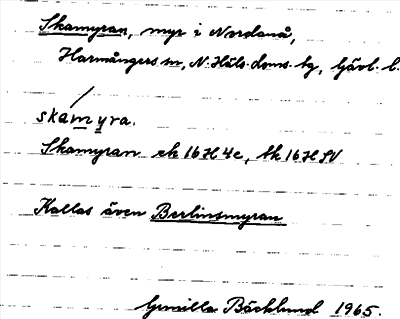 Skamyran, myr i Nordanå,
Harmångers sn, N. Häls. doms. bg, Gävl. l.
skamyra.
Skamyran ek 16 H 4c, tk 16 H SV
Kallas även Berlinsmyran
Gunilla Bäcklund 1965.